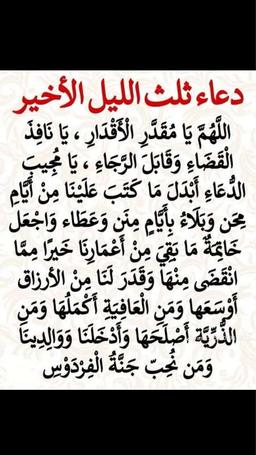 دعاء ثلث الليل الأخير
اللَّهُمَّ يَا مُقَدَّرِ الْأَقْدَارِ ، يَا نَافِذَ
الْقَضَاءِ وَقَابَلَ الرَّجَاءِ ، يَا مُجِيبَ
الدُّعَاءِ أَبْدَلَ مَا كَتَبَ عَلَيْنَا مِنْ أَيَّامِ
مِحَن وَبَلَاءُ بِأَيَّامِ مِنَن وَعَطَاء وَاجْعَل
خَاتِمَةُ مَا بَقِيَ مِنْ أَعْمَارِنَا خَيرًا مِمَّا
انْقَضَى مِنْهَا وَقَدَرَ لَنَا مِنْ الأرزاق
أَوْسَعَها وَمَنِ الْعَافِيَةِ أَكْمَلُهَا وَمَنِ
الذُّرِّيَّة أَصْلَحَهَا وَأَدْخَلَنَا وَوَالِدِينَا
وَمَن نُحِبّ جَنَّةُ الْفِرْدَوْسِ